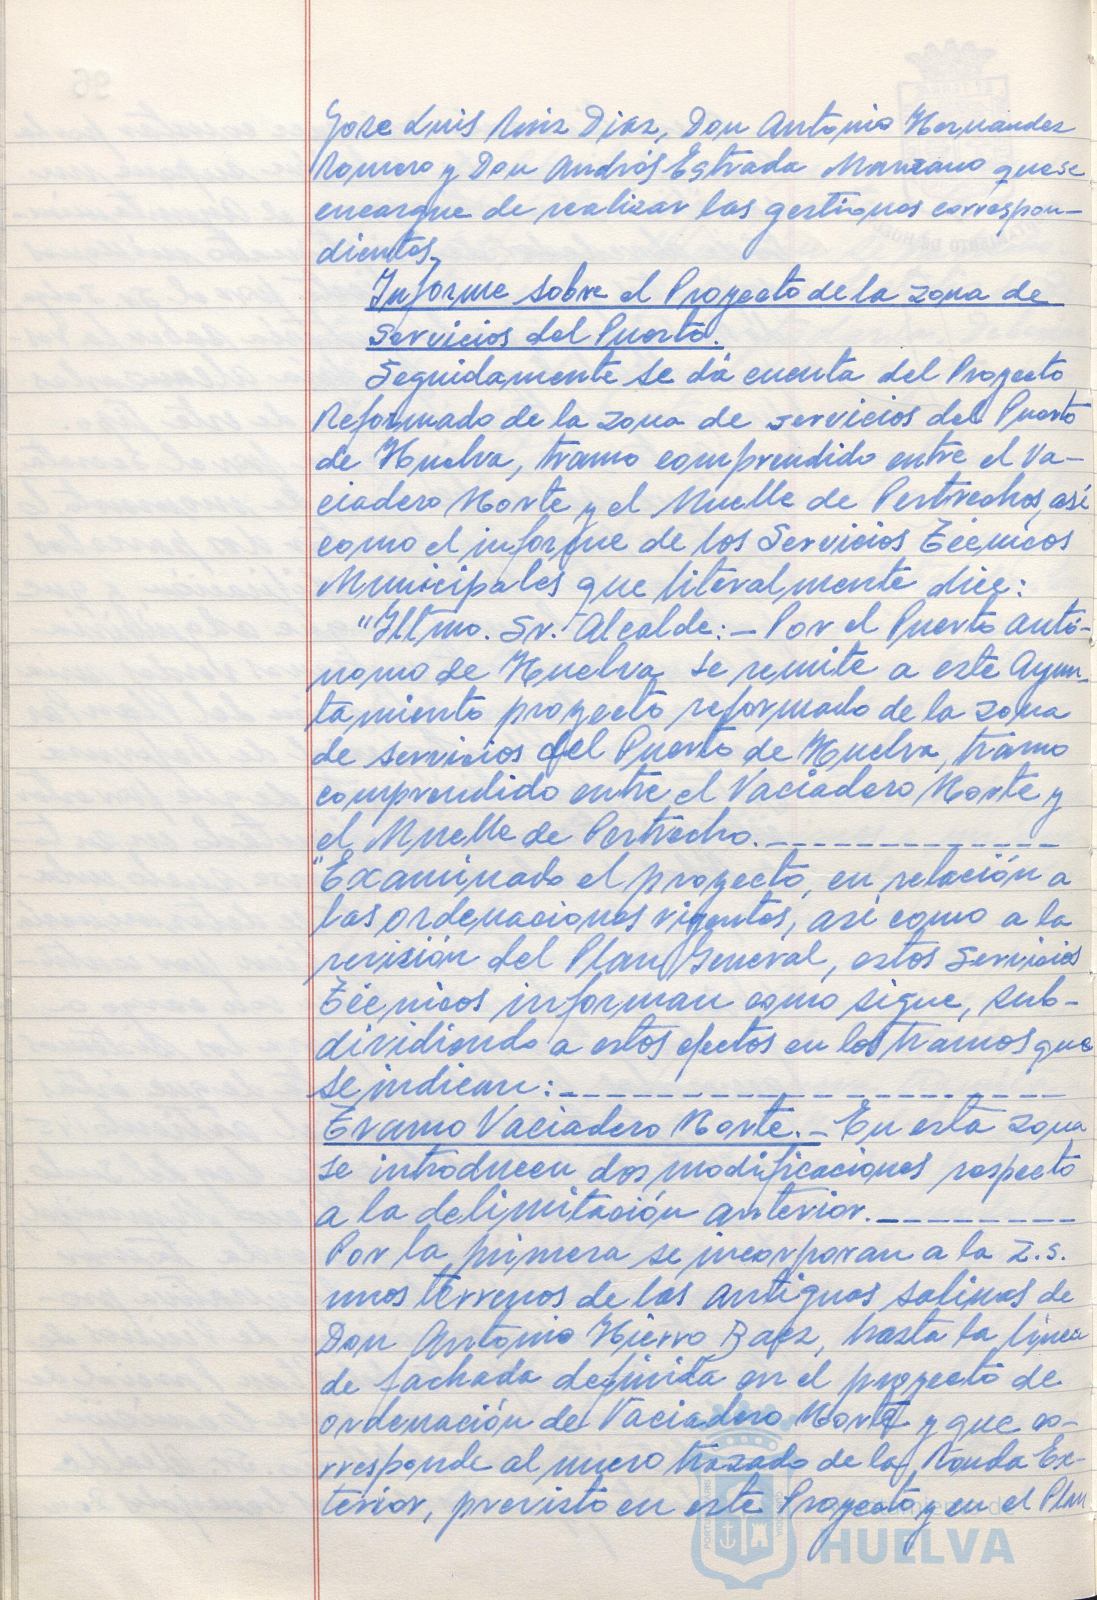 Jose Luis Ruiz Diaz, Don Antonio Hernandez
Romero y Don Andrés Estrada Manzano que se
encargue de realizar las gestiones correspon-
dientes.
Informe sobre el Proyecto de la zona de
Servicios del Puerto.
Seguidamente se dá cuenta del Proyecto
Reformado de la zona de servicios del Puerto
de Huelva, tramo comprendido entre el Va-
ciadero Norte y el Muelle de Pertrechos, así
como el informe de los Servicios Técnicos
Municipales que literalmente dice:
"Iltmo. Sr. Alcalde:- Por el Puerto Autó-
nomo de Huelva se remite a este Ayun-
tamiento proyecto reformado de la zona
de servicios del Puerto de Huelva, tramo
comprendido entre el Vaciadero Norte y
el Muelle de Pertrecho.
"Examinado el proyecto, en relación a
las ordenaciones vigentes, así como a la
revisión del Plan General, estos Servicios
Técnicos informan como sigue, sub-
dividiendo a estos efectos en los tramos que
se indican:
Tramo Vaciadero Norte.- En esta zona
se introducen dos modificaciones respecto
a la delimitación anterior.
Por la primera se incorporan a la Z.S.
unos terrenos de las antiguas salinas de
Don Antonio Hierro Baez, hasta la línea
de fachada definida en el proyecto de
ordenación de Vaciadero Norte y que co-
rresponde al nuevo trazado de la Ronda Ex-
terior, previsto en este Proyecto y en el Plan
HUELVA